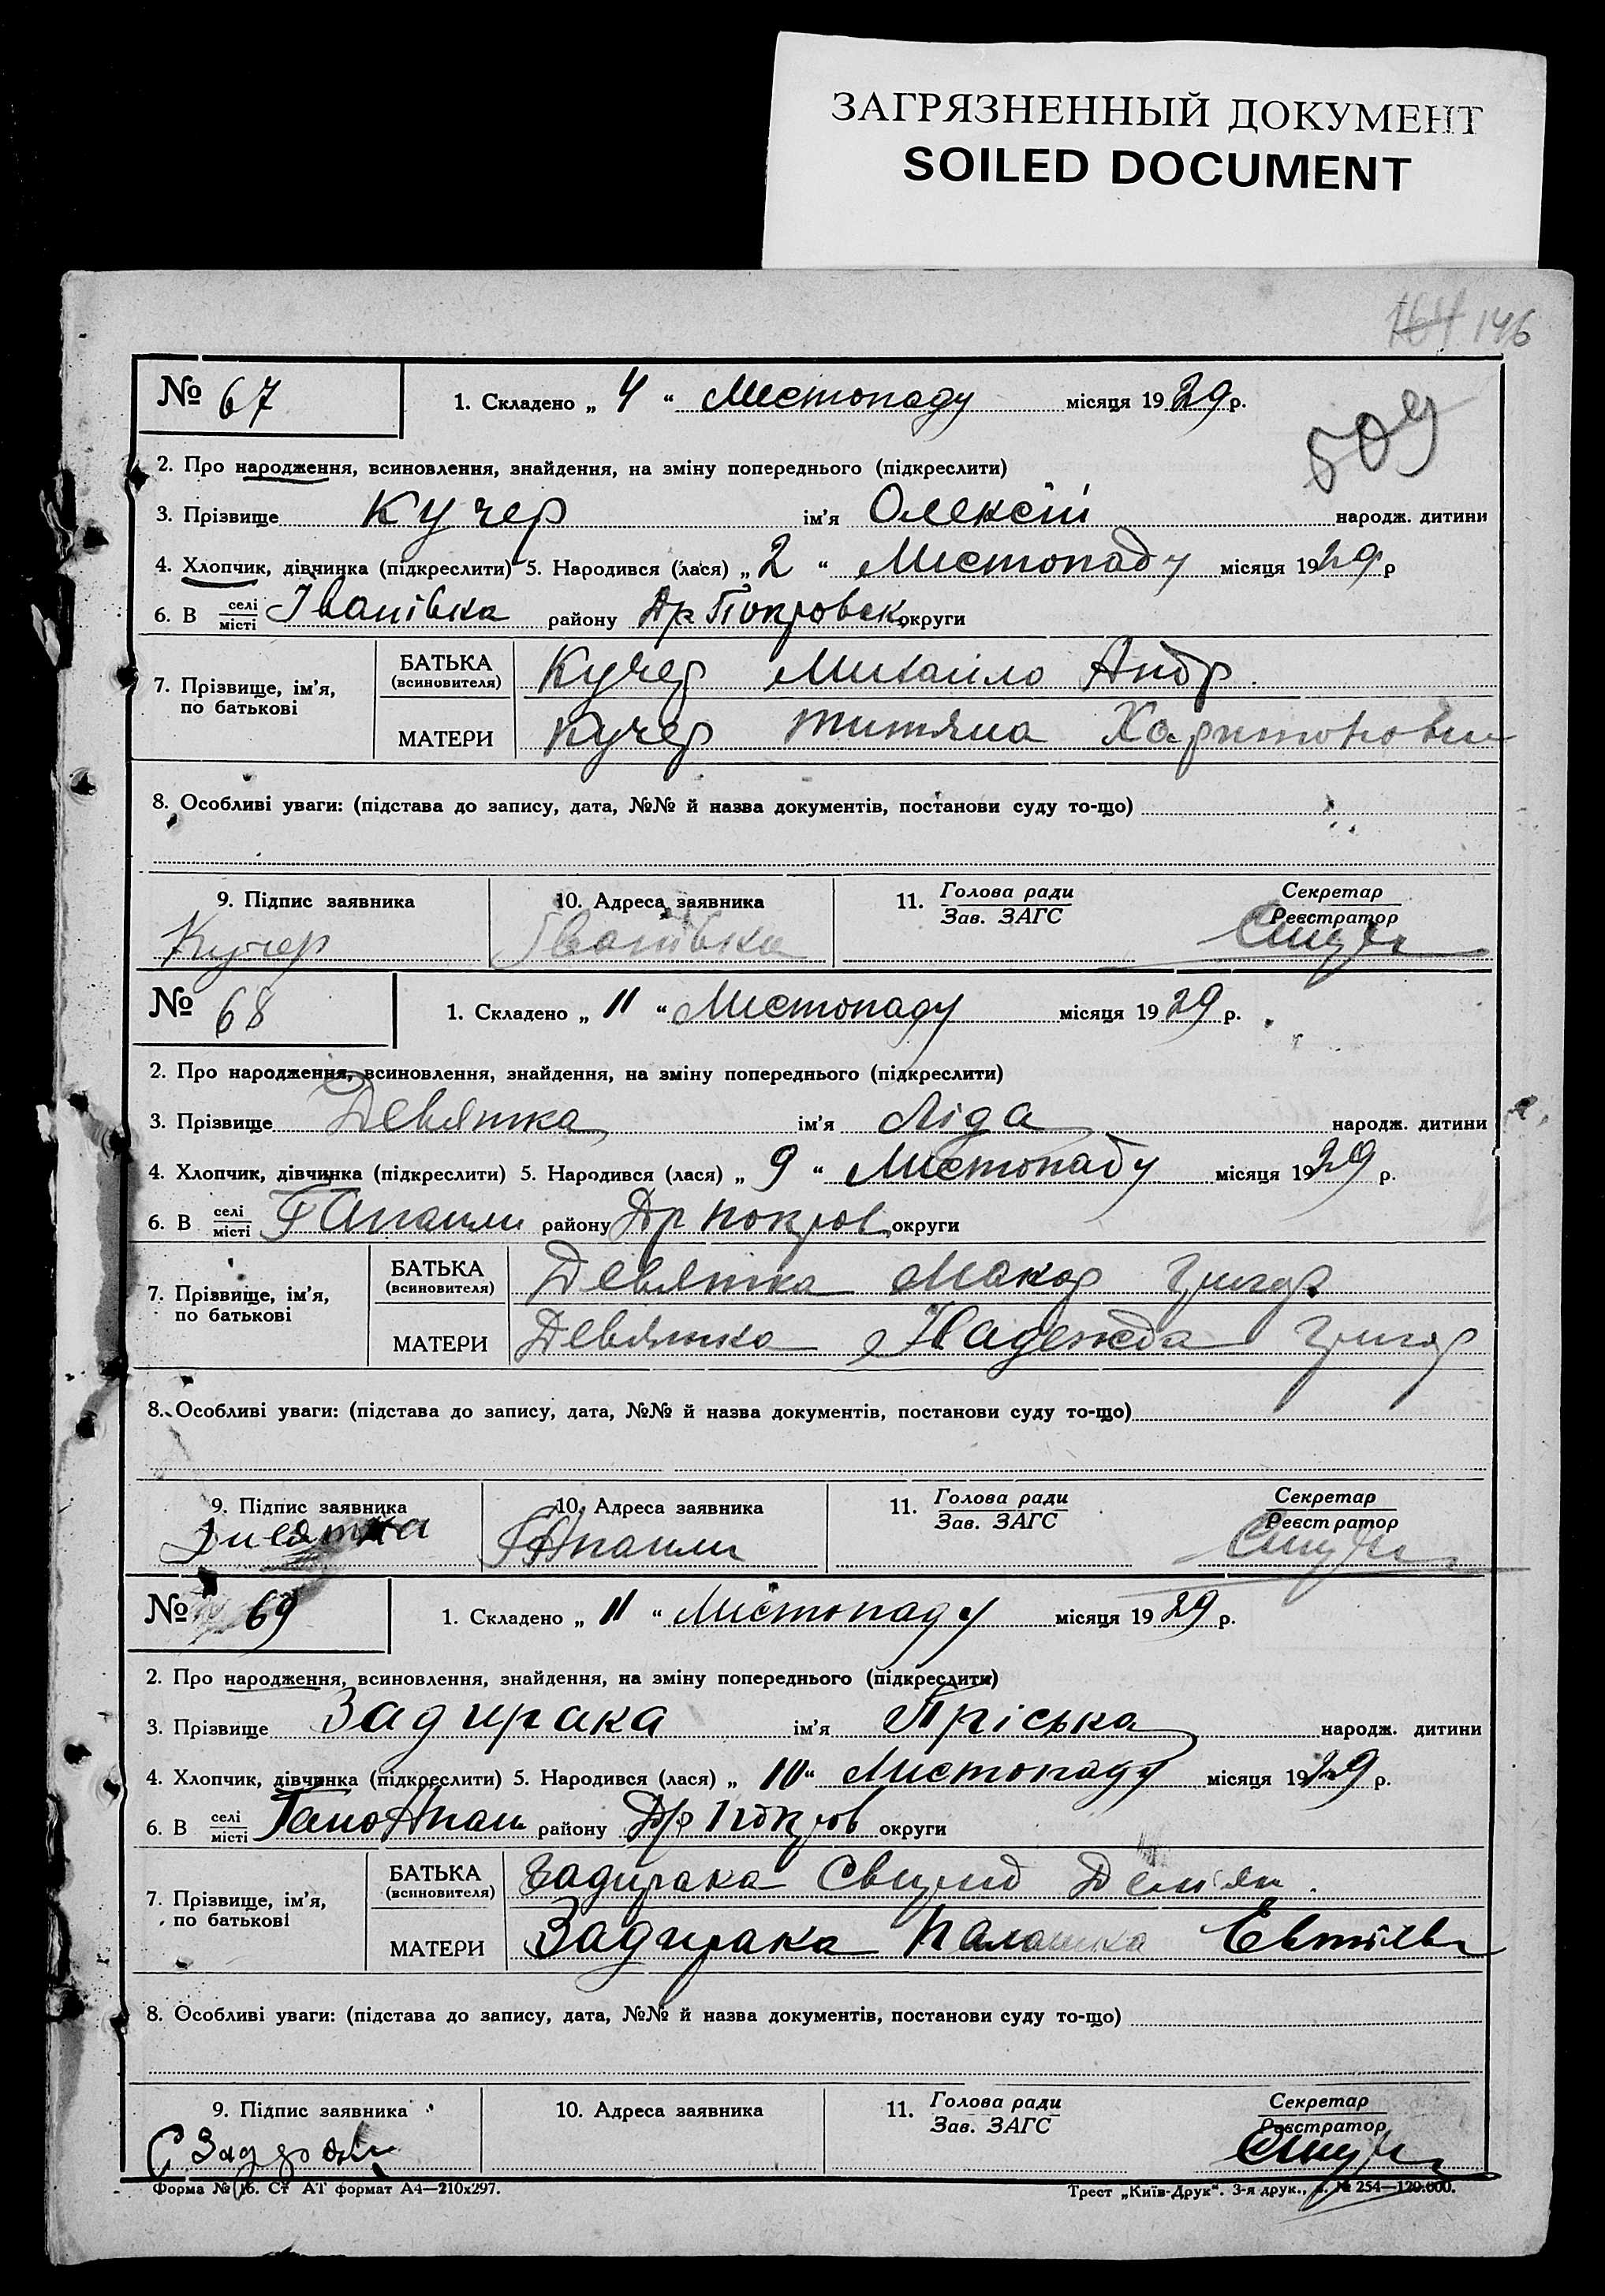 ЗАГРЯЗНЕННЫЙ ДОКУМЕНТ
SOILED DOCUMENT
164 146
№ 67 1. Складено „ 4 “ Листопаду місяця 1929 р.
509
2. Про народження, всиновлення, знайдення, на зміну попереднього (підкреслити)
3. Прізвище Кучер ім'я Олексій народж. дитини
4. Хлопчик, дівчинка (підкреслити) 5. Народився (лася) „ 2 “ Листопаду місяця 1929 р
6. В селі місті Іванівка району Др Покровськ округи
7. Прізвище, ім'я, по батькові
БАТЬКА (всиновителя) Кучер Михайло Андр.
МАТЕРИ Кучер Титяна Харитоновна
8. Особливі уваги: (підстава до запису, дата, №№ й назва документів, постанови суду то-що)
9. Підпис заявника 10. Адреса заявника 11. Голова ради Зав. ЗАГС Секретар Реєстратор
Кучер Іванівка
№ 68 1. Складено „ 11 “ Листопаду місяця 1929 р.
2. Про народження, всиновлення, знайдення, на зміну попереднього (підкреслити)
3. Прізвище Девятка ім'я Ліда народж. дитини
4. Хлопчик, дівчинка (підкреслити) 5. Народився (лася) „ 9 “ Листопаду місяця 1929 р.
6. В селі місті району Др Покров округи
7. Прізвище, ім'я, по батькові
БАТЬКА (всиновителя) Девятка Макар Григор
МАТЕРИ Девятка Надежда Григор
8. Особливі уваги: (підстава до запису, дата, №№ й назва документів, постанови суду то-що)
9. Підпис заявника 10. Адреса заявника 11. Голова ради Зав. ЗАГС Секретар Реєстратор
№ 69 1. Складено „ 11 “ Листопаду місяця 1929 р.
2. Про народження, всиновлення, знайдення, на зміну попереднього (підкреслити)
3. Прізвище Задирака ім'я Пріська народж. дитини
4. Хлопчик, дівчинка (підкреслити) 5. Народився (лася) „ 10 “ Листопаду місяця 1929 р.
6. В селі місті району Др Покров округи
7. Прізвище, ім'я, по батькові
БАТЬКА (всиновителя) Задирака Свирид Демян.
МАТЕРИ Задирака Палашка
8. Особливі уваги: (підстава до запису, дата, №№ й назва документів, постанови суду то-що)
9. Підпис заявника 10. Адреса заявника 11. Голова ради Зав. ЗАГС Секретар Реєстратор
Форма № 16. Ст АТ формат А4—210х297. Трест „Київ-Друк“. 3-я друк., з. № 254—120.000.